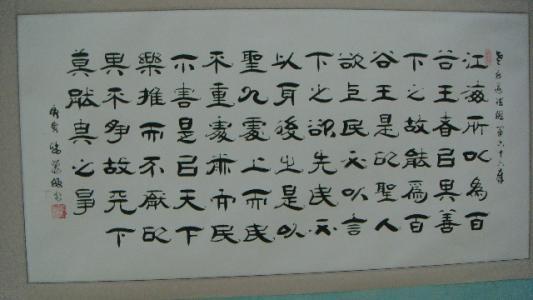 老子道德經第六十六章
江海所以為百
谷王者以其善
下之故能為百
谷王是以聖人
欲上民必以言
下之欲先民必
以身後之是以
聖人處上而民
不重處前而民
不害是以天下
樂推而不厭以
其不爭故天下
莫能與之爭